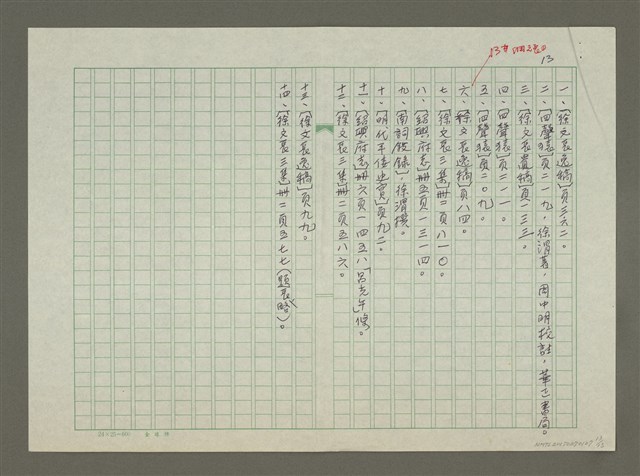 13
一、〔徐文長逸稿〕頁三六二。
二、〔四聲猿〕頁二一九，徐渭著，周中明校註，華正書局。
三、〔徐文長逸稿〕頁一三三。
四、〔四聲猿〕頁二一一。
五、〔四聲猿〕頁二〇九。
六、〔徐文長逸稿〕頁八四。
七、〔徐文長三集〕冊二頁八一〇。
八、〔紹興府志〕冊五頁一三一四。
九、〔南詞敘錄〕，徐渭撰。
十、〔明代平倭史實〕頁九二。
十一、〔紹興府志〕冊六頁一四五八「呂光午」條。
十二、〔徐文長三集〕冊二頁五八六。
十三、〔徐文長逸稿〕頁九九。
十四、〔徐文長三集〕冊二頁五七七（題長略）。